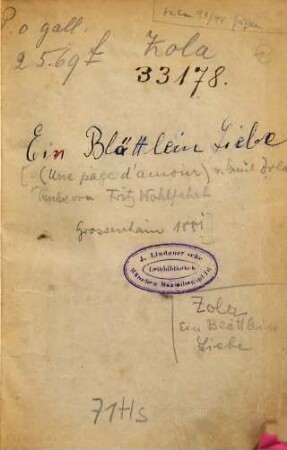 P. o gall.
2569 f
Zola
33178.
Ein Blättlein Liebe
[(Une page d'amour) v. Emil Zola
von Fritz Wohlfahrt
Grossenhain 1881]
J. Lindauer'sche
Leihbibliothek
München
Zola
Ein Blättlein
Liebe
71Hs